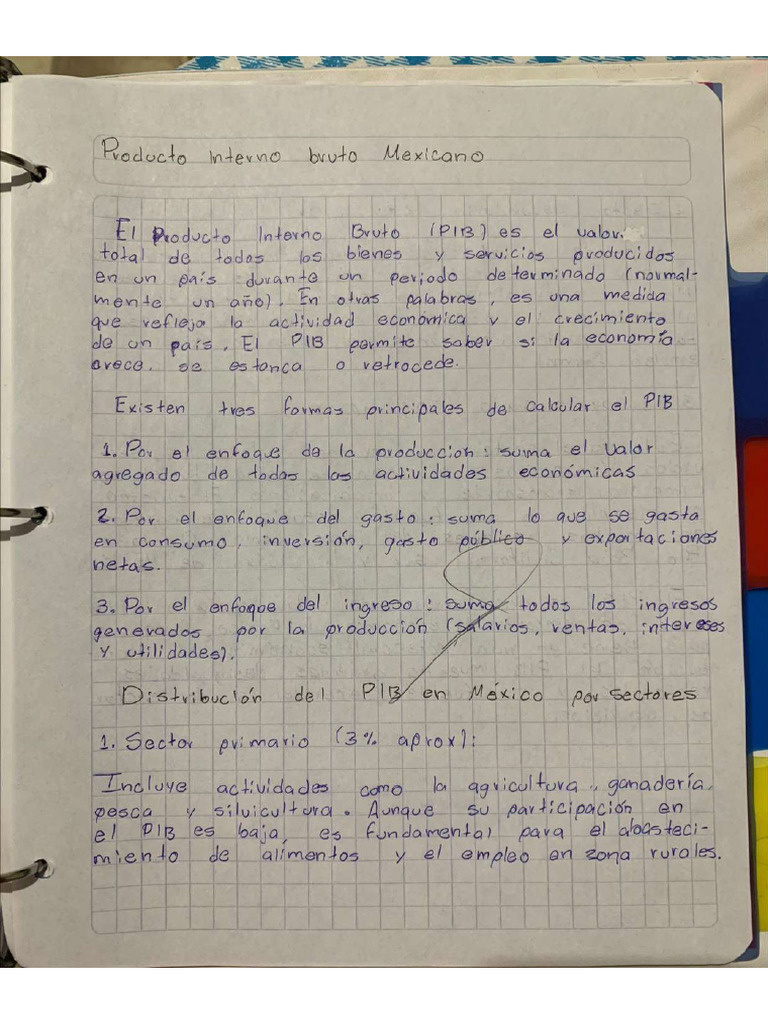 Producto Interno bruto Mexicano
El Producto Interno Bruto (PIB) es el valor.
total de todos los bienes y servicios producidos
en un país durante un periodo determinado (normal-
mente un año). En otras palabras, es una medida
que refleja la actividad económica y el crecimiento
de un país. El PIB permite saber si la economía
crece, se estanca o retrocede.
Existen tres formas principales de calcular el PIB
1. Por el enfoque de la produccion: suma el valor
agregado de todas las actividades económicas
2. Por el enfoque del gasto: suma lo que se gasta
en consumo, inversión, gasto público y exportaciones
netas.
3. Por el enfoque del ingreso: suma todos los ingresos
generados por la producción (salarios, ventas, intereses
y utilidades).
Distribución del PIB en México por sectores
1. Sector primario (3% aprox):
Incluye actividades como la agricultura, ganadería,
pesca y silvicultura. Aunque su participación en
el PIB es baja, es fundamental para el abasteci-
miento de alimentos y el empleo en zona rurales.